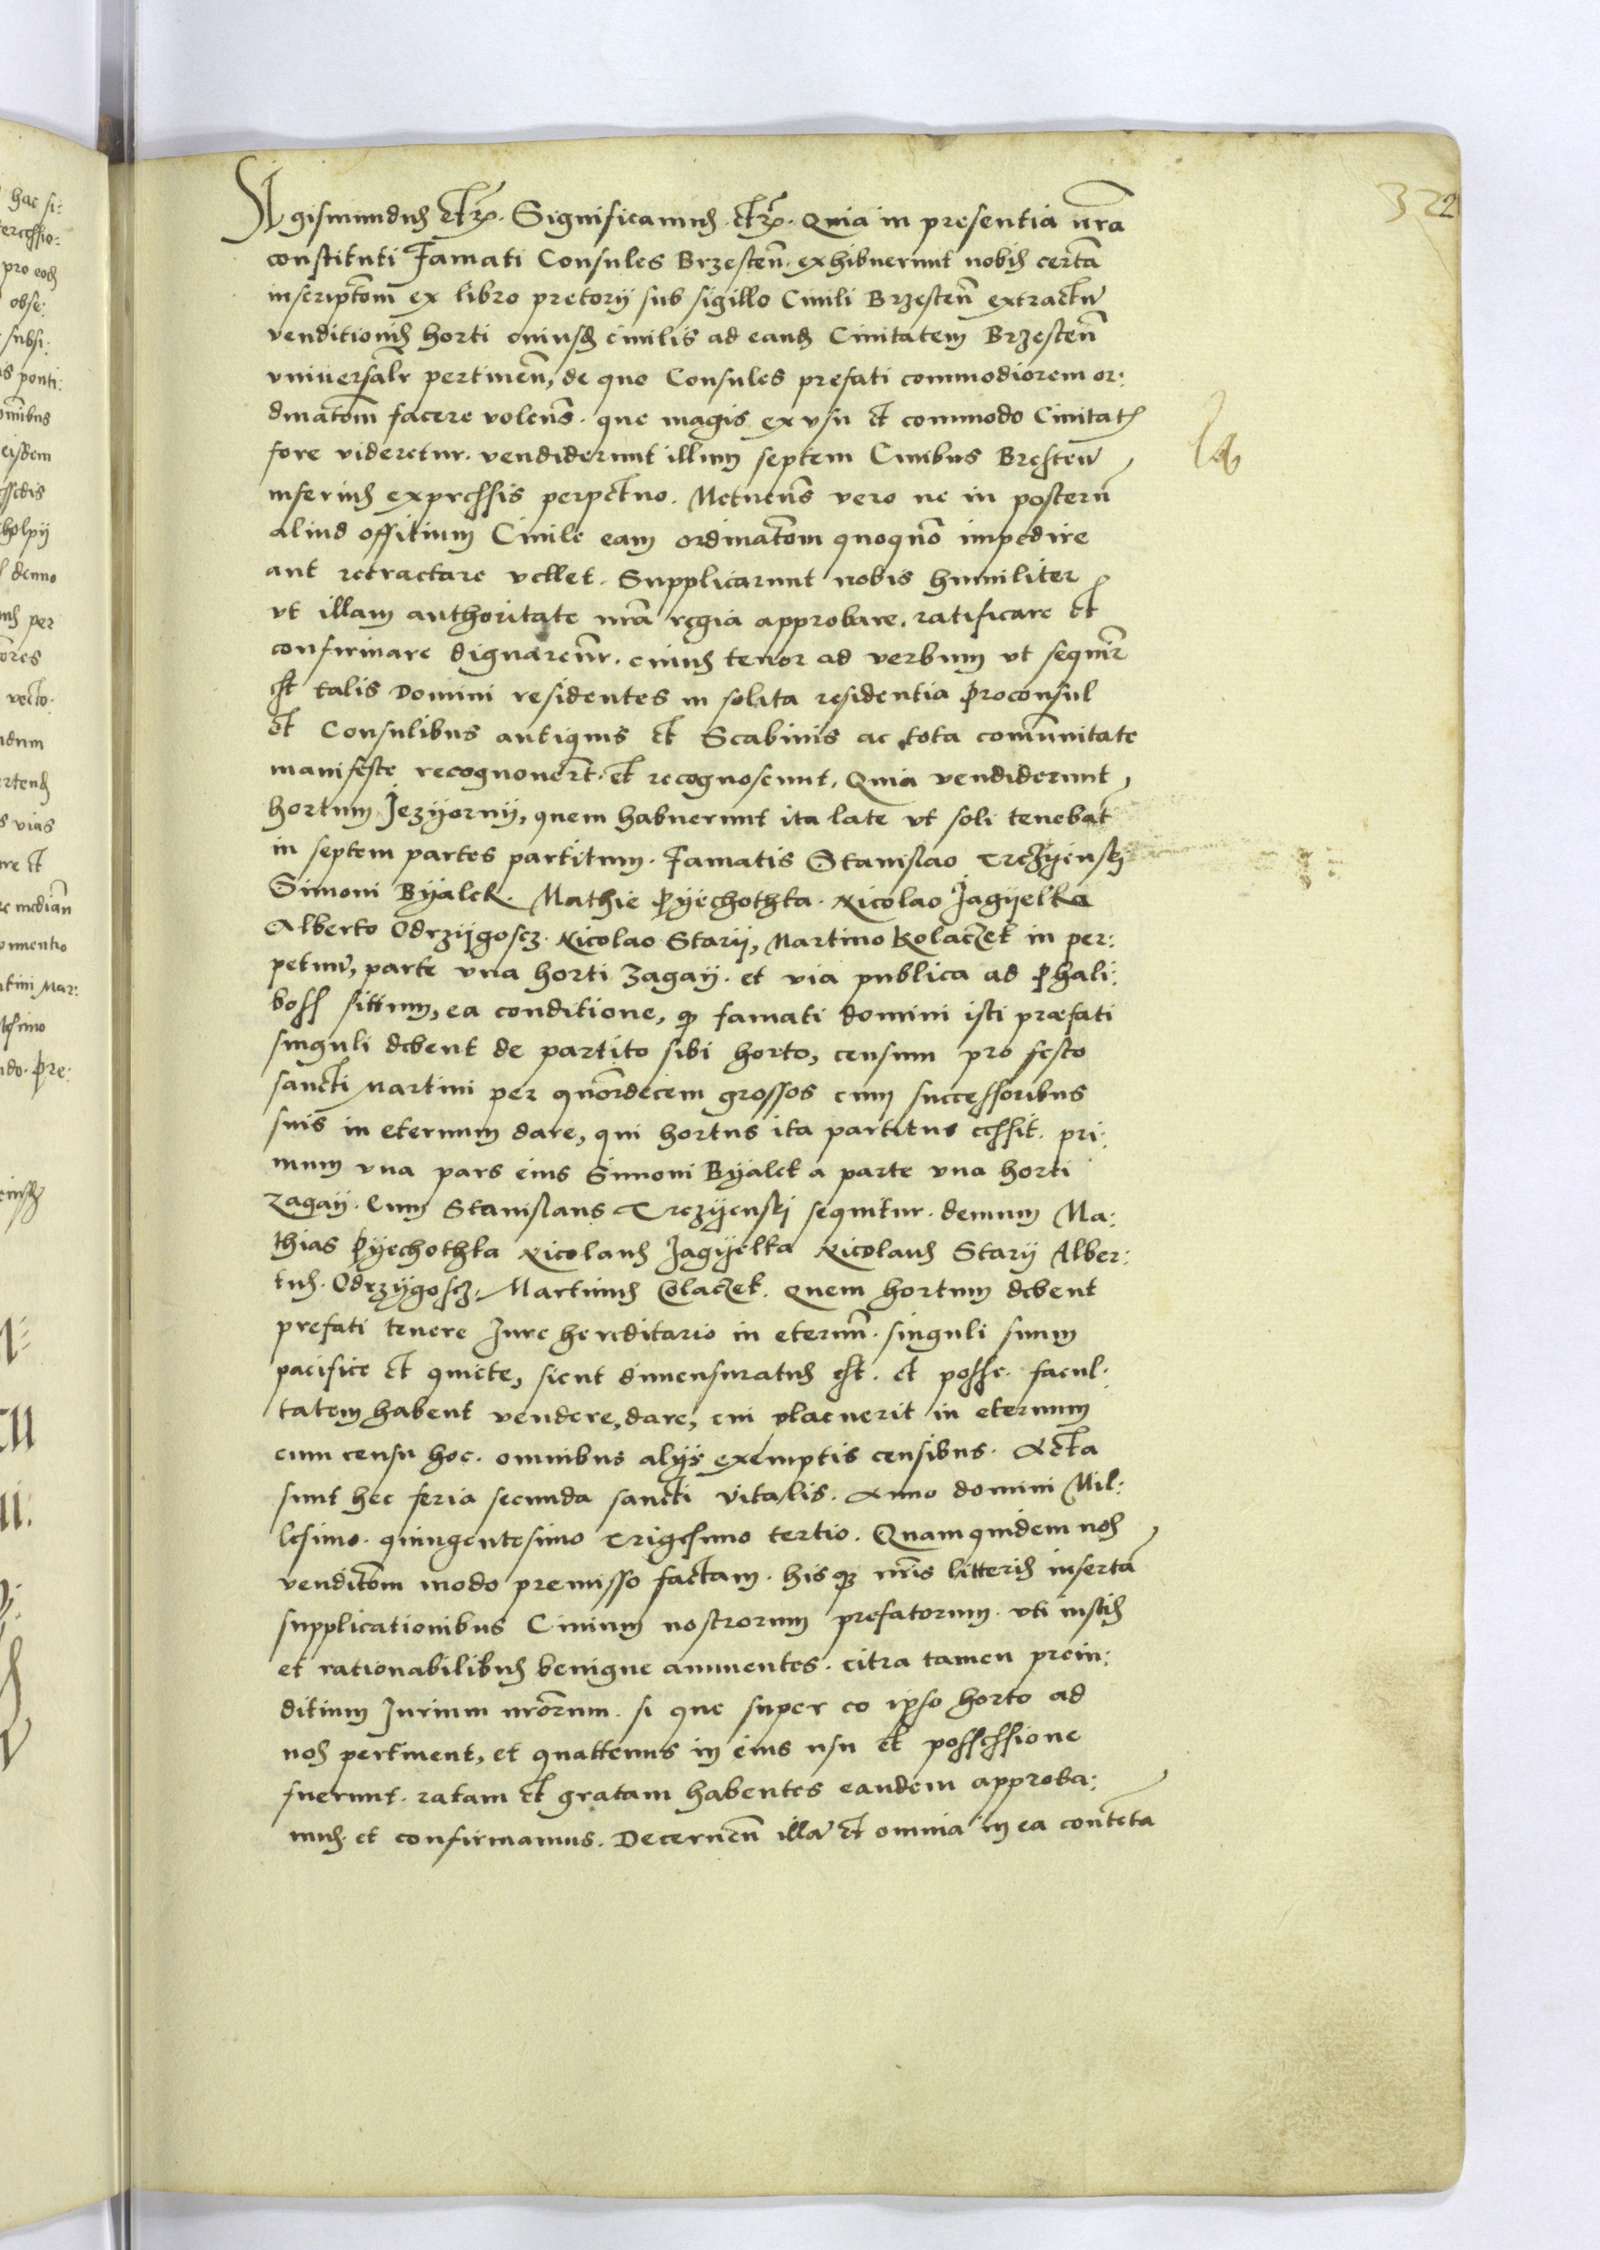 322
Sigismundus etc. Significamus etc. Quia in presentia nra
constituti Famati Consules Brzesten. exhibuerunt nobis certa
inscriptom ex libro pretorij sub sigillo Civili Brzesten extractu
venditionis horti cuiusd civilis ad eand Civitatem Brzesten
universalr pertinen, de quo Consules prefati commodiorem or:
dinatom facere volens. que magis ex usu et commodo Civitatis
fore videretur. vendiderunt illum septem Civibus Bresten
inferius expressis perpetuo. Metuens vero ne in posteru
aliud offitium Civile eam ordinatom quoquo impedire
aut retractare vellet. Supplicarunt nobis humiliter
ut illam authoritate nra regia approbare. ratificare et
confirmare dignaremr. cuius tenor ad verbum ut sequir
est talis Domini residentes in solita residentia Proconsul
et Consulibus antiquis et Scabinis ac tota comunitate
manifeste recognovert. et recognoscunt. Quia vendiderunt
hortum Jezyorny, quem habuerunt ita late ut soli tenebat
in septem partes partitum. Famatis Stanislao Trczyensky
Simoni Byalek. Mathie Pyechothka. Nicolao Jagyelka
Alberto Odrzygoscz. Nicolao Stary, Martino Kolaczek in per:
petuu, parte una horti Zagaÿ. et via publica ad Phali:
boss sittum, ea conditione, q famati domini isti præfati
singuli debent de partito sibi horto, censum pro festo
sancti Martini per quordecem grossos cum successoribus
suis in eternum dare, qui hortus ita partitus esssit. pri:
mum una pars eius Simoni Byalek a parte una horti
Zagaÿ. Cum Stanislaus Trczyensky sequitur. demum Ma:
thias Pyechothka Nicolaus Jagyelka Nicolaus Stary Alber:
tus. Odrzygoscz. Martinus Colaczek. Quem hortum debent
prefati tenere Jure hereditario in eternu. singuli suum
pacifice et quiete, sicut dimensuratus est. et posse. facul:
tatem habent vendere, dare, cui placuerit in eternum
cum censu hoc. omnibus alijs exemptis censibus. Acta
sunt hec feria secunda sancti Vitalis. Anno domini Mil:
lesimo. quingentesimo Trigesimo tertio. Quamquidem nos
venditom modo premisso factam. his q nris litteris inserta
supplicationibus Civium nostrorum prefatorum. uti iustis
et rationabilibus benigne annuentes. citra tamen preiu:
ditium Jurium nrorum. si que super eo ipso horto ad
nos pertinent, et quattenus in eius usu et possessione
fuerunt. ratam et gratam habentes eandem approba:
mus. et confirmamus. Decernen illa et omnia in ea conteta